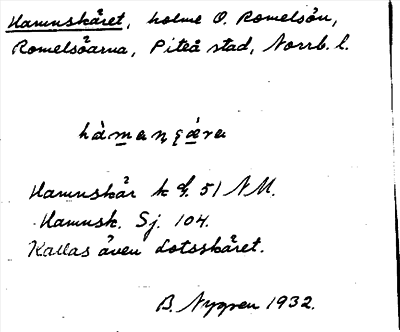 Hamnskäret, holme O. Romelsön,
Romelsöarna, Piteå stad, Norrb. l.
Hamnskär
51 NM.
Hamnsk. Sj. 104.
Kallas även Lotsskäret.
B. Nygren 1932.